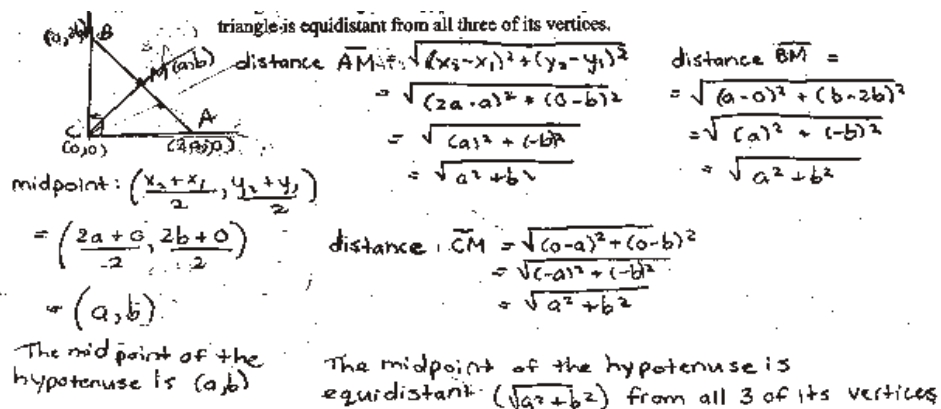 triangle is equidistant from all three of its vertices.
(0,2b) B
M(a,b)
A
C
(0,0)
(2a,0)
distance AM = √((x₂-x₁)² + (y₂-y₁)²)
= √((2a-a)² + (0-b)²)
= √((a)² + (-b)²)
= √(a² + b²)
distance BM =
= √((a-0)² + (b-2b)²)
= √((a)² + (-b)²)
= √(a² + b²)
midpoint: ((x₂+x₁)/2, (y₂+y₁)/2)
= ((2a+0)/2, (2b+0)/2)
= (a,b)
distance: CM = √((0-a)² + (0-b)²)
= √((-a)² + (-b)²)
= √(a² + b²)
The midpoint of the
hypotenuse is (a,b)
The midpoint of the hypotenuse is
equidistant (√(a²+b²)) from all 3 of its vertices